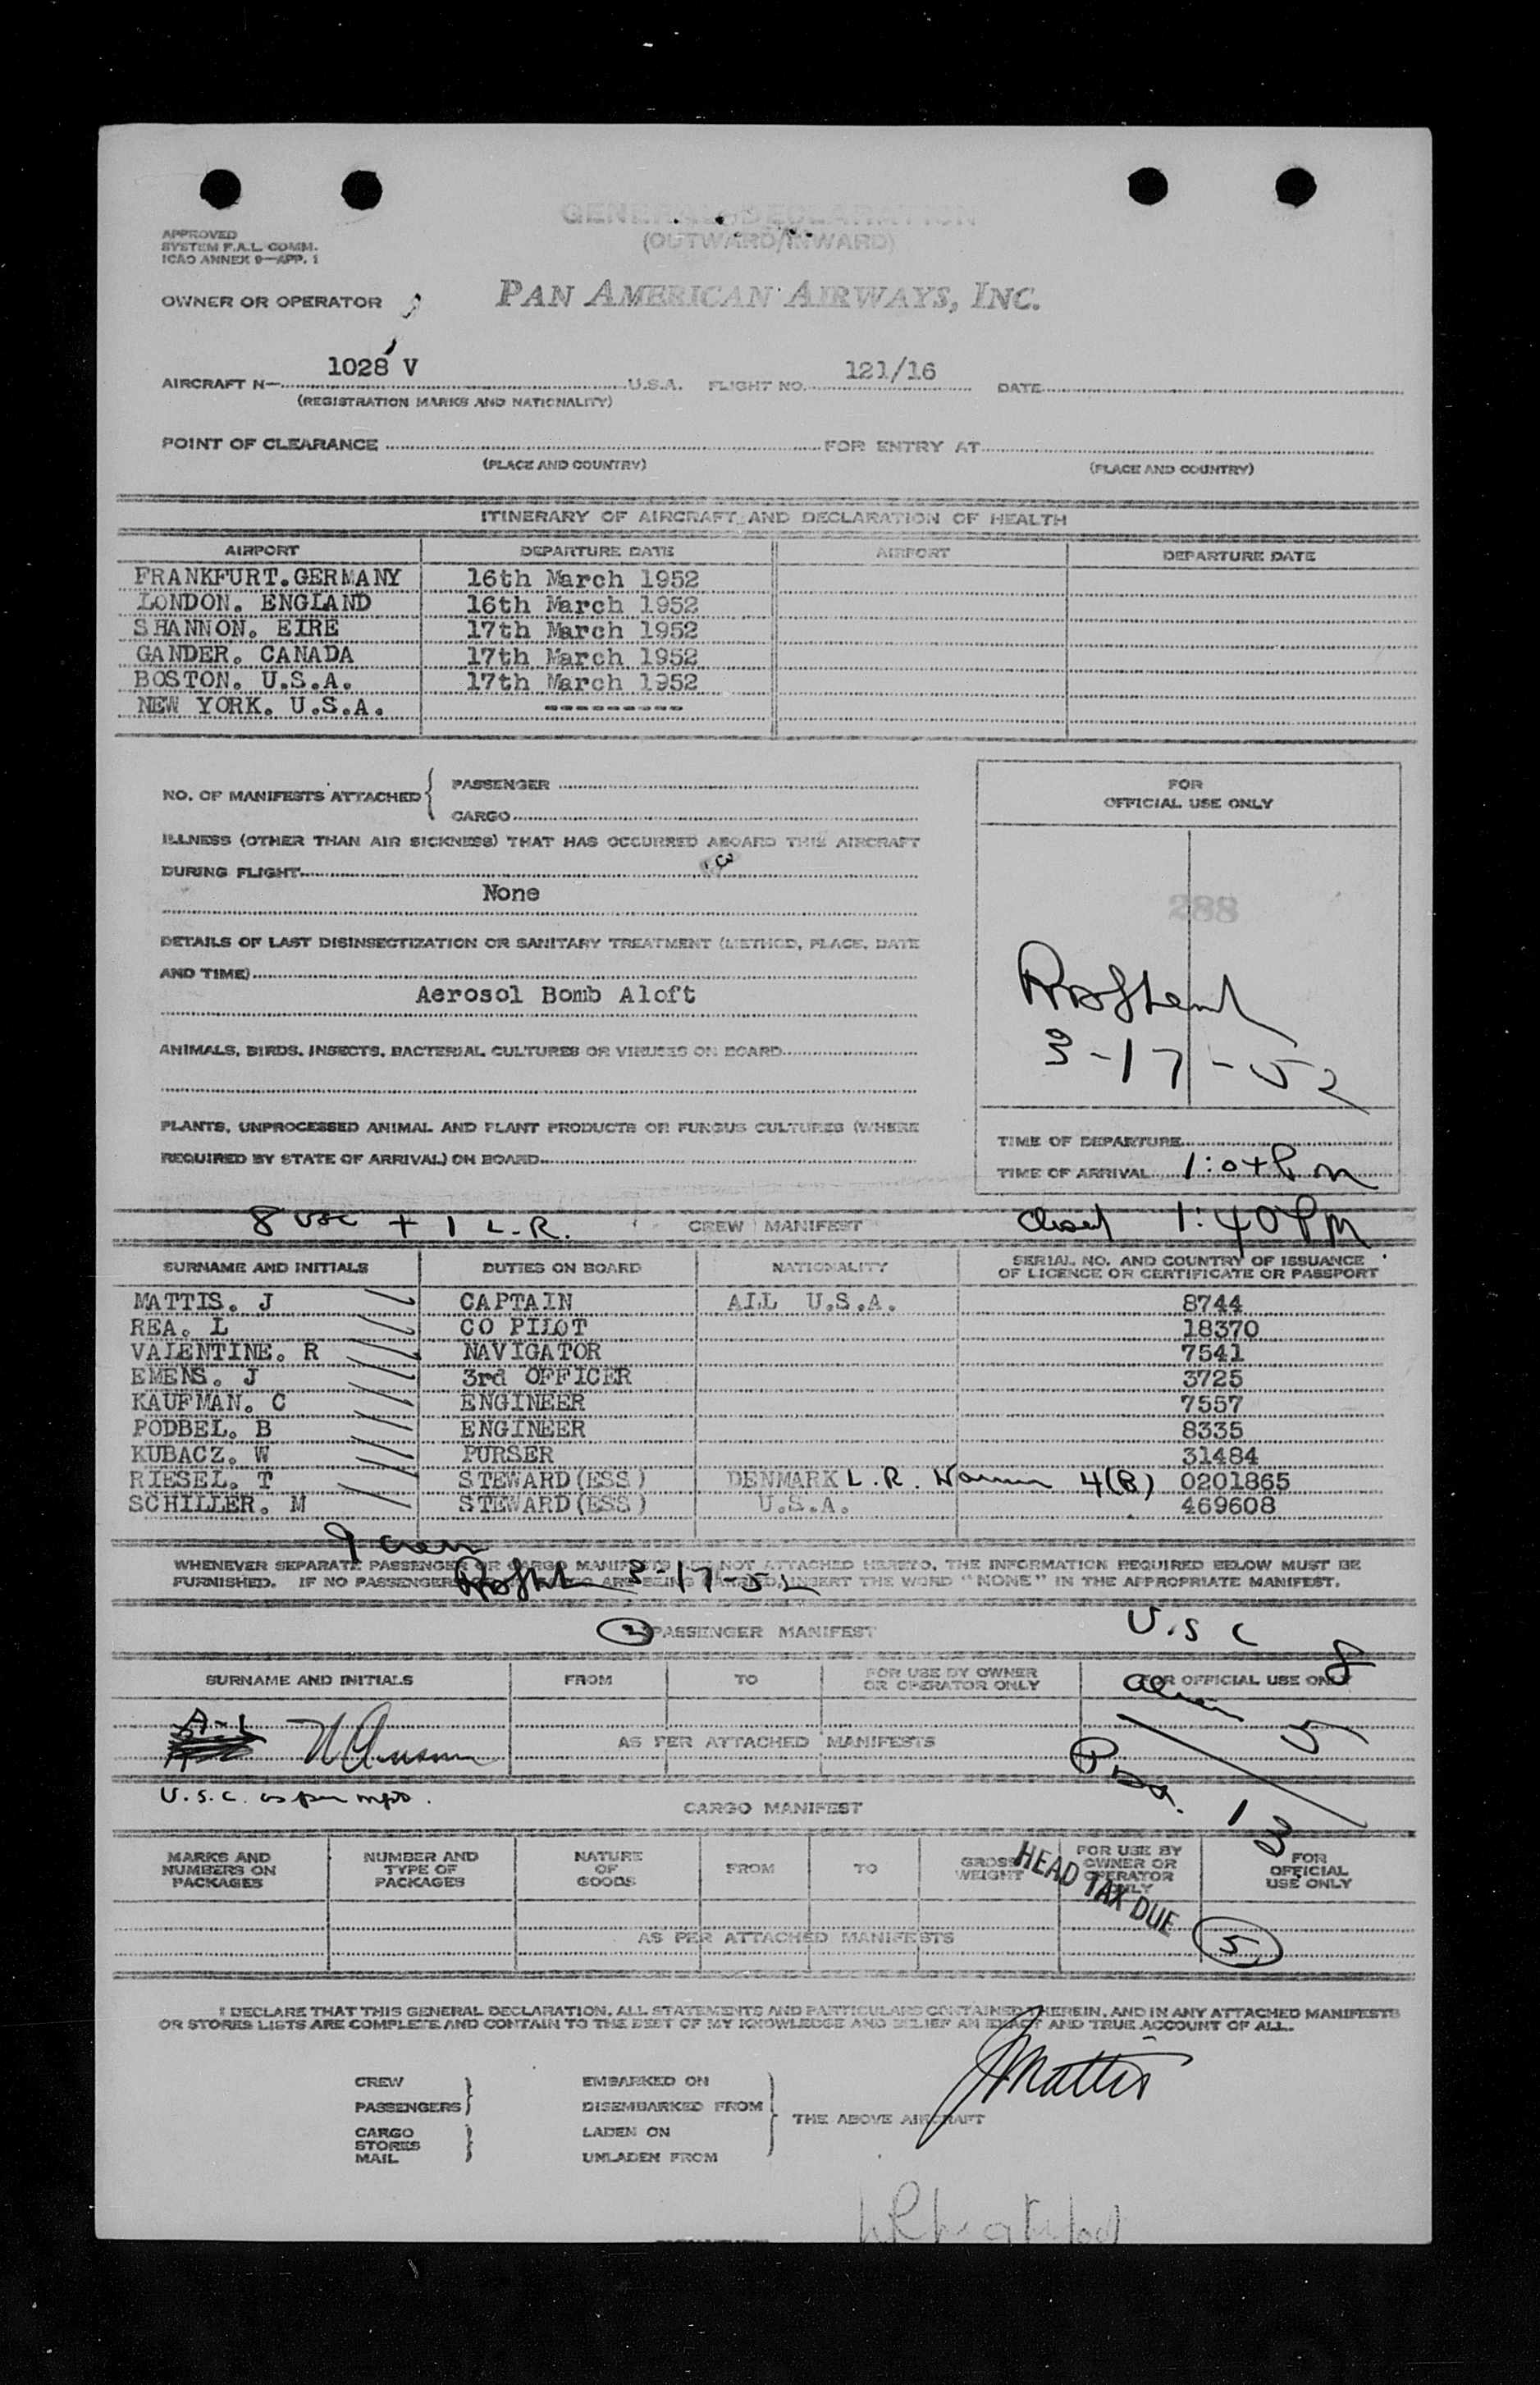 GENERAL DECLARATION
(OUTWARD/INWARD)
APPROVED
SYSTEM F.A.L. COMM.
ICAO ANNEX 9—APP. 1
OWNER OR OPERATOR PAN AMERICAN AIRWAYS, INC.
AIRCRAFT N— 1028 V U.S.A. FLIGHT NO. 121/16 DATE
(REGISTRATION MARKS AND NATIONALITY)
POINT OF CLEARANCE FOR ENTRY AT
(PLACE AND COUNTRY) (PLACE AND COUNTRY)
ITINERARY OF AIRCRAFT AND DECLARATION OF HEALTH
AIRPORT DEPARTURE DATE AIRPORT DEPARTURE DATE
FRANKFURT. GERMANY 16th March 1952
LONDON. ENGLAND 16th March 1952
SHANNON. EIRE 17th March 1952
GANDER. CANADA 17th March 1952
BOSTON. U.S.A. 17th March 1952
NEW YORK. U.S.A. ---------
NO. OF MANIFESTS ATTACHED { PASSENGER
CARGO
FOR
OFFICIAL USE ONLY
ILLNESS (OTHER THAN AIR SICKNESS) THAT HAS OCCURRED ABOARD THIS AIRCRAFT
DURING FLIGHT
None
288
DETAILS OF LAST DISINSECTIZATION OR SANITARY TREATMENT (METHOD, PLACE, DATE
AND TIME)
Aerosol Bomb Aloft
3-17-52
ANIMALS, BIRDS, INSECTS, BACTERIAL CULTURES OR VIRUSES ON BOARD
PLANTS, UNPROCESSED ANIMAL AND PLANT PRODUCTS OR FUNGUS CULTURES (WHERE
REQUIRED BY STATE OF ARRIVAL) ON BOARD
TIME OF DEPARTURE
TIME OF ARRIVAL 1:04 Pm
8 usc + 1 L.R. CREW MANIFEST closed 1:40 PM
SURNAME AND INITIALS DUTIES ON BOARD NATIONALITY SERIAL NO. AND COUNTRY OF ISSUANCE
OF LICENCE OR CERTIFICATE OR PASSPORT
MATTIS. J CAPTAIN ALL U.S.A. 8744
REA. L CO PILOT 18370
VALENTINE. R NAVIGATOR 7541
EMENS. J 3rd OFFICER 3725
KAUFMAN. C ENGINEER 7557
PODBEL. B ENGINEER 8335
KUBACZ. W PURSER 31484
RIESEL. T STEWARD(ESS) DENMARK L.R. 4(B) 0201865
SCHILLER. M STEWARD(ESS) U.S.A. 469608
9 crew
WHENEVER SEPARATE PASSENGER OR CARGO MANIFESTS ARE NOT ATTACHED HERETO, THE INFORMATION REQUIRED BELOW MUST BE
FURNISHED. IF NO PASSENGERS ARE BEING CARRIED, INSERT THE WORD "NONE" IN THE APPROPRIATE MANIFEST.
3-17-52
2 PASSENGER MANIFEST U.S C 8
SURNAME AND INITIALS FROM TO FOR USE BY OWNER
OR OPERATOR ONLY FOR OFFICIAL USE ONLY
alien 5
A-1
AS PER ATTACHED MANIFESTS
Pax. 13
U.S.C. as per mfts.
CARGO MANIFEST
MARKS AND
NUMBERS ON
PACKAGES
NUMBER AND
TYPE OF
PACKAGES
NATURE
OF
GOODS
FROM
TO
GROSS
WEIGHT
FOR USE BY
OWNER OR
OPERATOR
ONLY
FOR
OFFICIAL
USE ONLY
HEAD TAX DUE 5
AS PER ATTACHED MANIFESTS
I DECLARE THAT THIS GENERAL DECLARATION, ALL STATEMENTS AND PARTICULARS CONTAINED THEREIN, AND IN ANY ATTACHED MANIFESTS
OR STORES LISTS ARE COMPLETE AND CONTAIN TO THE BEST OF MY KNOWLEDGE AND BELIEF AN EXACT AND TRUE ACCOUNT OF ALL.
J Mattis
CREW
PASSENGERS }
EMBARKED ON
DISEMBARKED FROM
THE ABOVE AIRCRAFT
CARGO
STORES
MAIL }
LADEN ON
UNLADEN FROM